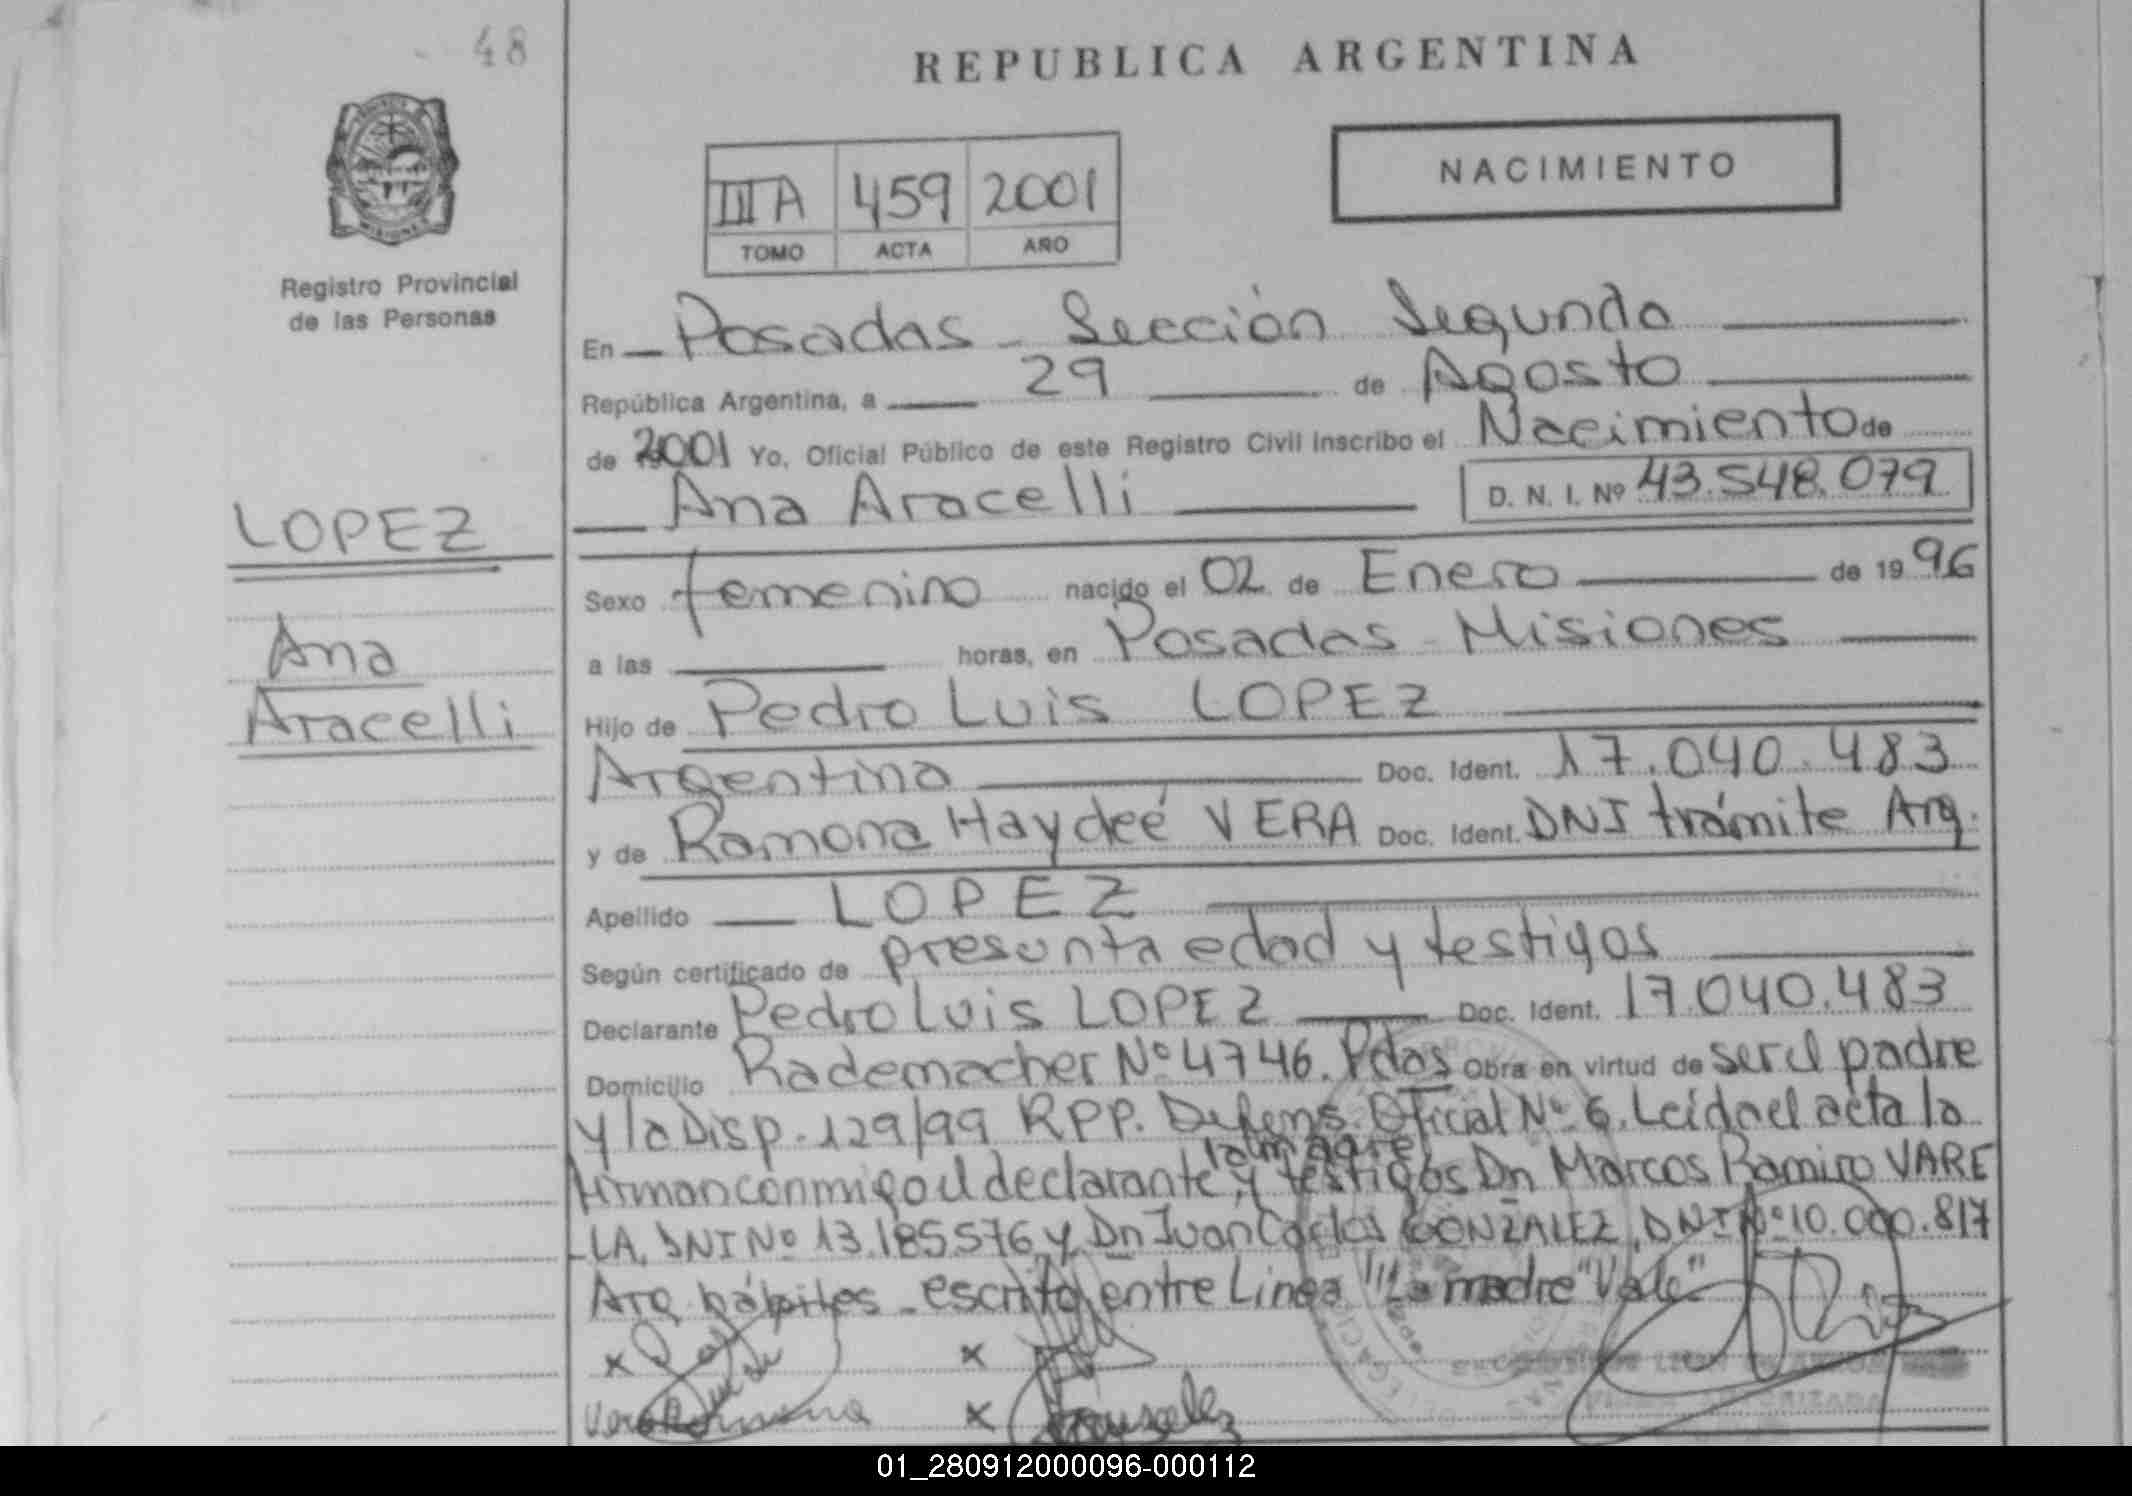 48
REPUBLICA ARGENTINA
NACIMIENTO
III A 459 2001
TOMO ACTA AÑO
Registro Provincial
de las Personas
En Posadas - Sección Segunda
República Argentina, a 29 de Agosto
de 2001 Yo, Oficial Público de este Registro Civil inscribo el Nacimiento de
Ana Aracelli D. N. I. Nº 43.548.079
LOPEZ
Ana
Aracelli
Sexo femenino nacido el 02 de Enero de 1996
a las horas, en Posadas - Misiones
Hijo de Pedro Luis LOPEZ
Argentina Doc. Ident. 17.040.483
y de Ramona Haydeé VERA Doc. Ident. DNI trámite Arg.
Apellido LOPEZ
Según certificado de presunta edad y testigos
Declarante Pedro Luis LOPEZ Doc. Ident. 17.040.483
Domicilio Rademacher Nº 4746. Pdas Obra en virtud de ser el padre
y la Disp. 129/99 RPP. Defens. Oficial Nº 6. Leída el acta la
la madre
firman conmigo el declarante, y testigos Dn Marcos Ramiro VARE
LA, DNI Nº 13.185.576 y Dn Juan Carlos GONZALEZ, DNI Nº 10.000.817
Arg. hábiles - escrito entre Linea "La madre" Vale"
x
x
Vera Ramona x Gonzalez
01_280912000096-000112